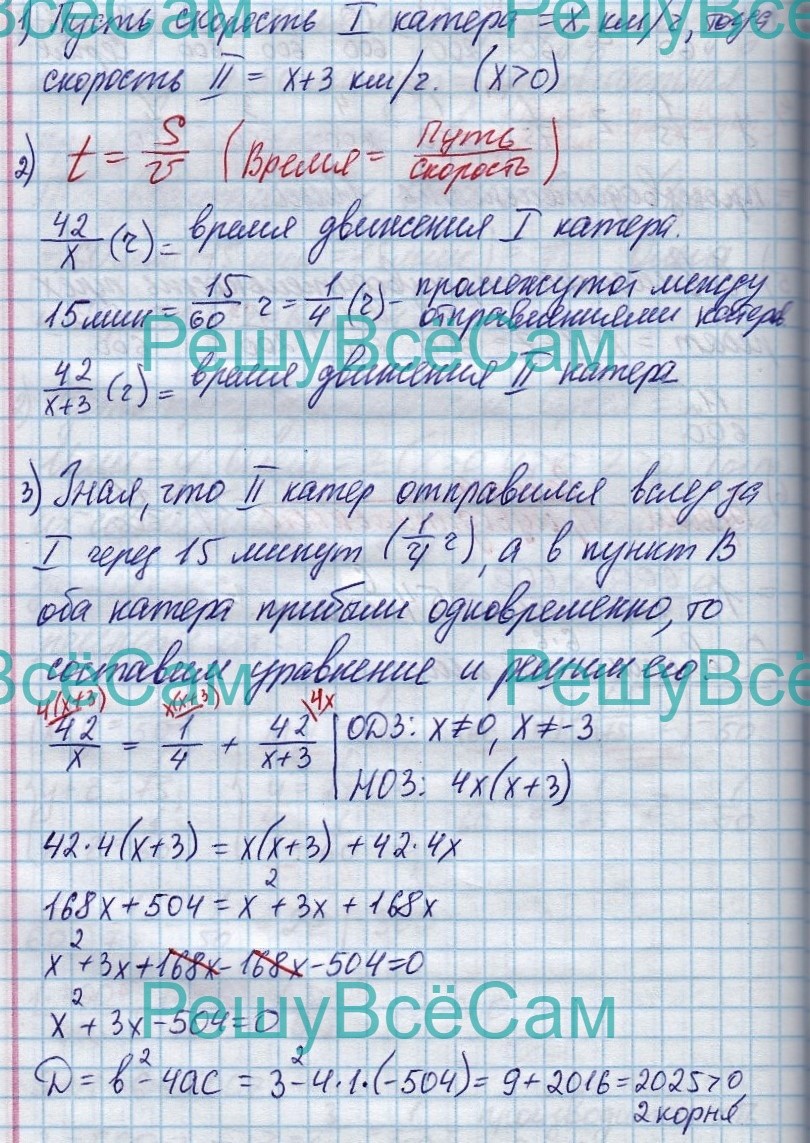 1) Пусть скорость I катера = x км/ч, тогда
скорость II = x+3 км/ч. (x>0)
2) t = S/v (Время = Путь/скорость)
42/x (ч) = время движения I катера.
15мин = 15/60 ч = 1/4 (ч) - промежуток между
отправлениями катеров
РешуВсёСам
42/(x+3) (ч) = время движения II катера
3) Зная, что II катер отправился вслед за
I через 15 минут (1/4 ч), а в пункт В
оба катера прибыли одновременно, то
составим уравнение и решим его:
ВсёСам РешуВсё
4(x+3) x(x+3) 4x
42/x = 1/4 + 42/(x+3) | ОДЗ: x≠0, x≠-3
НОЗ: 4x(x+3)
42·4(x+3) = x(x+3) + 42·4x
168x+504 = x²+3x+168x
x²+3x+168x-168x-504=0
РешуВсёСам
x²+3x-504=0
Д = в²-4ac = 3²-4·1·(-504) = 9+2016 = 2025>0,
2 корня